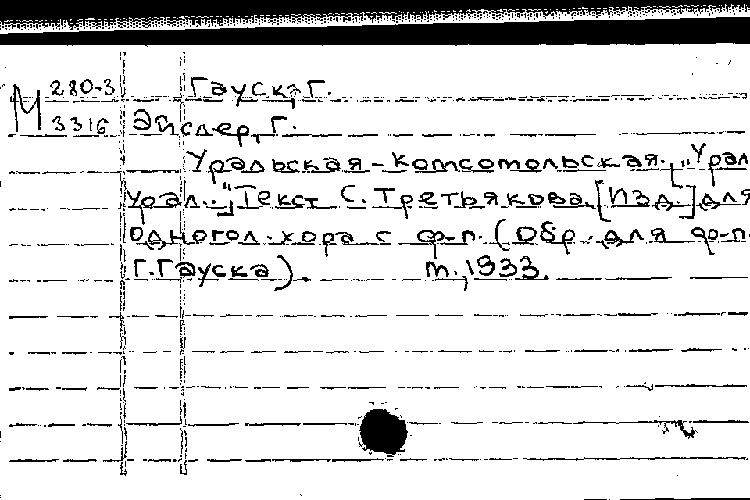 М 280-3 Гауск, Г.
3316 Эйслер, Г.
Уральская-комсомольская. [„Урал
Урал..."] Текст С. Третьякова. [Изд.] для
одногол. хора с ф-п. (Обр. для ф-п.
Г. Гауска). М., 1933.